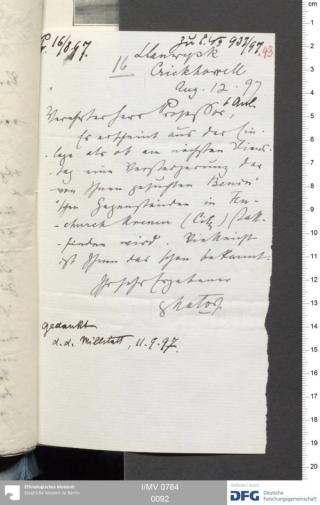 P. 16/8.97.
Zu E. N° 937/97.
93
16
Llanwysk
Crickhowell
Aug. 12. 97
1 Anl.
Verehrter Herr Professor,
Es erscheint aus der Ein-
lage als ob am nächsten Diens-
tag eine Versteigerung der
von Ihnen gesuchten Benin'
'schen Gegenständen in Fen-
church Avenue (City) statt-
finden wird. Vielleicht
ist Ihnen das schon bekannt.
Ihr sehr Ergebener
gedankt
d.d. Millstatt, 11.9.97.
cm
1
2
3
4
5
6
7
8
9
10
11
12
13
14
15
16
17
18
19
20
Ethnologisches Museum
Staatliche Museen zu Berlin
I/MV 0764
0092
Gefördert durch
DFG Deutsche
Forschungsgemeinschaft